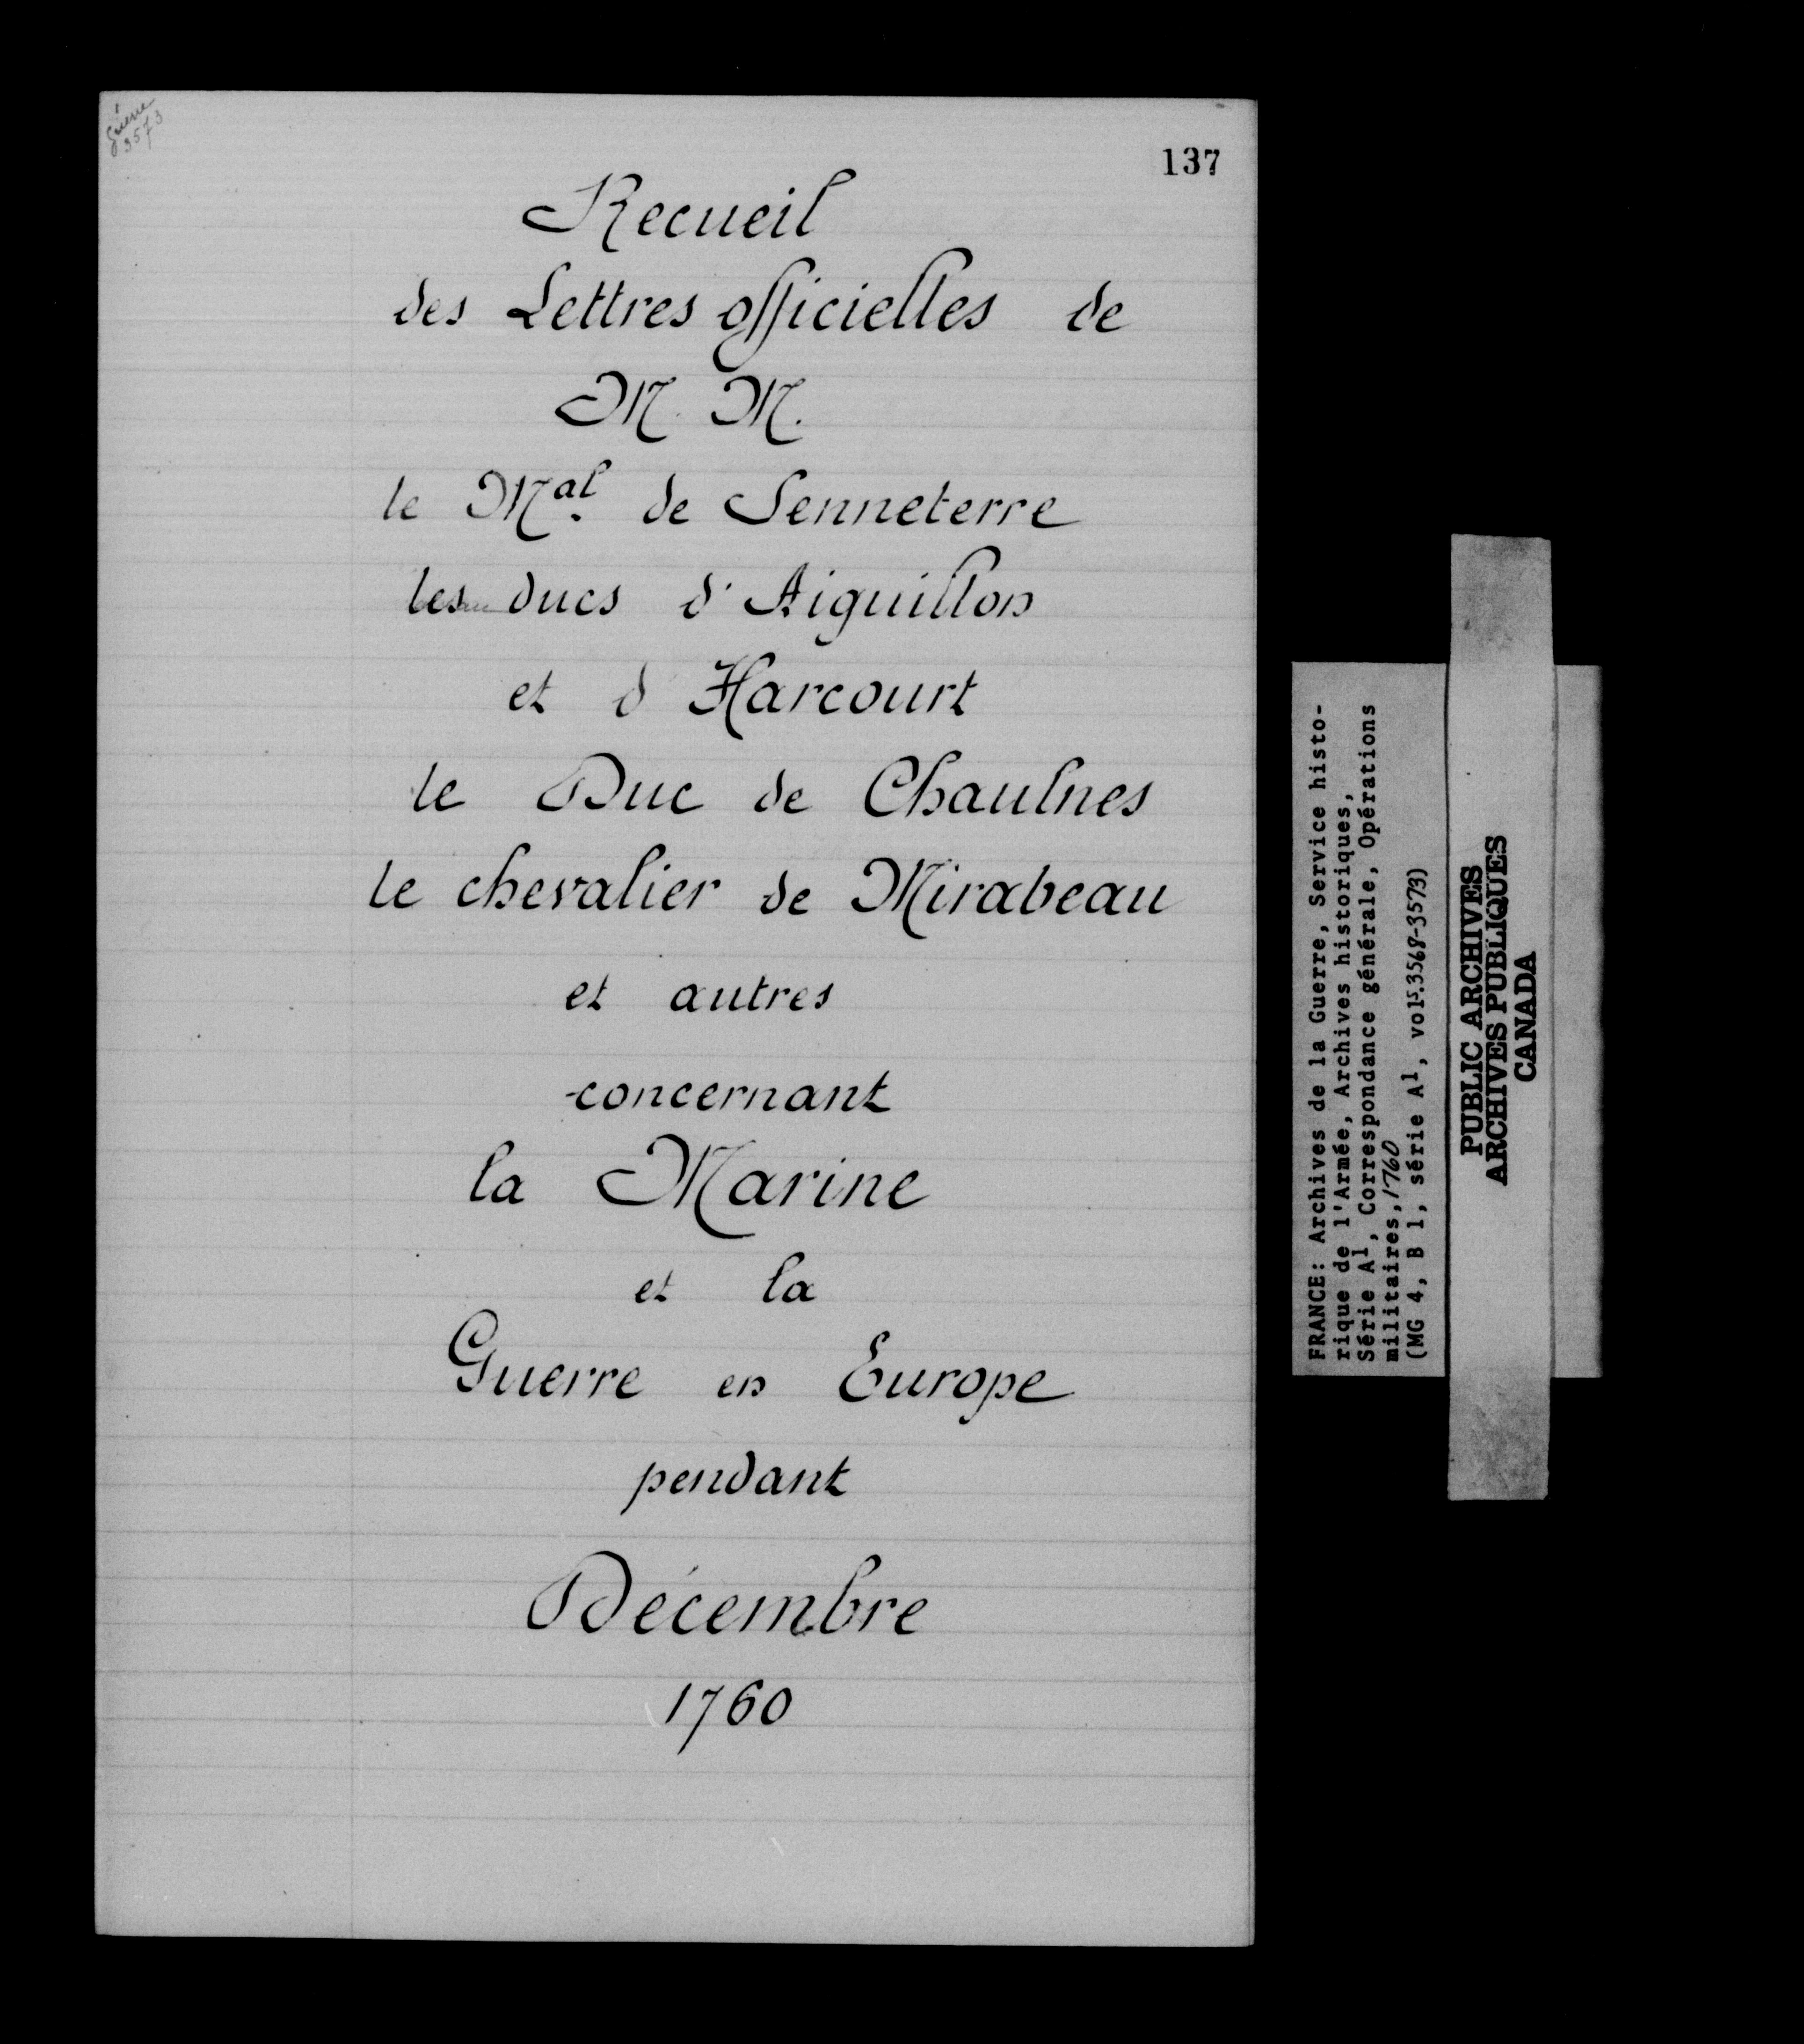 guerre
3573
137
Recueil
des Lettres officielles de
M. M.
le Mal. de Senneterre
les ducs d'Aiguillon
et d Harcourt
le Duc de Chaulnes
le chevalier de Mirabeau
et autres
concernant
la Marine
et la
Guerre en Europe
pendant
Décembre
1760
FRANCE: Archives de la Guerre, Service histo-
rique de l'Armée, Archives historiques,
Série A1, Correspondance générale, Opérations
militaires, 1760
(MG 4, B 1, série A1, vols.3568-3573)
PUBLIC ARCHIVES
ARCHIVES PUBLIQUES
CANADA